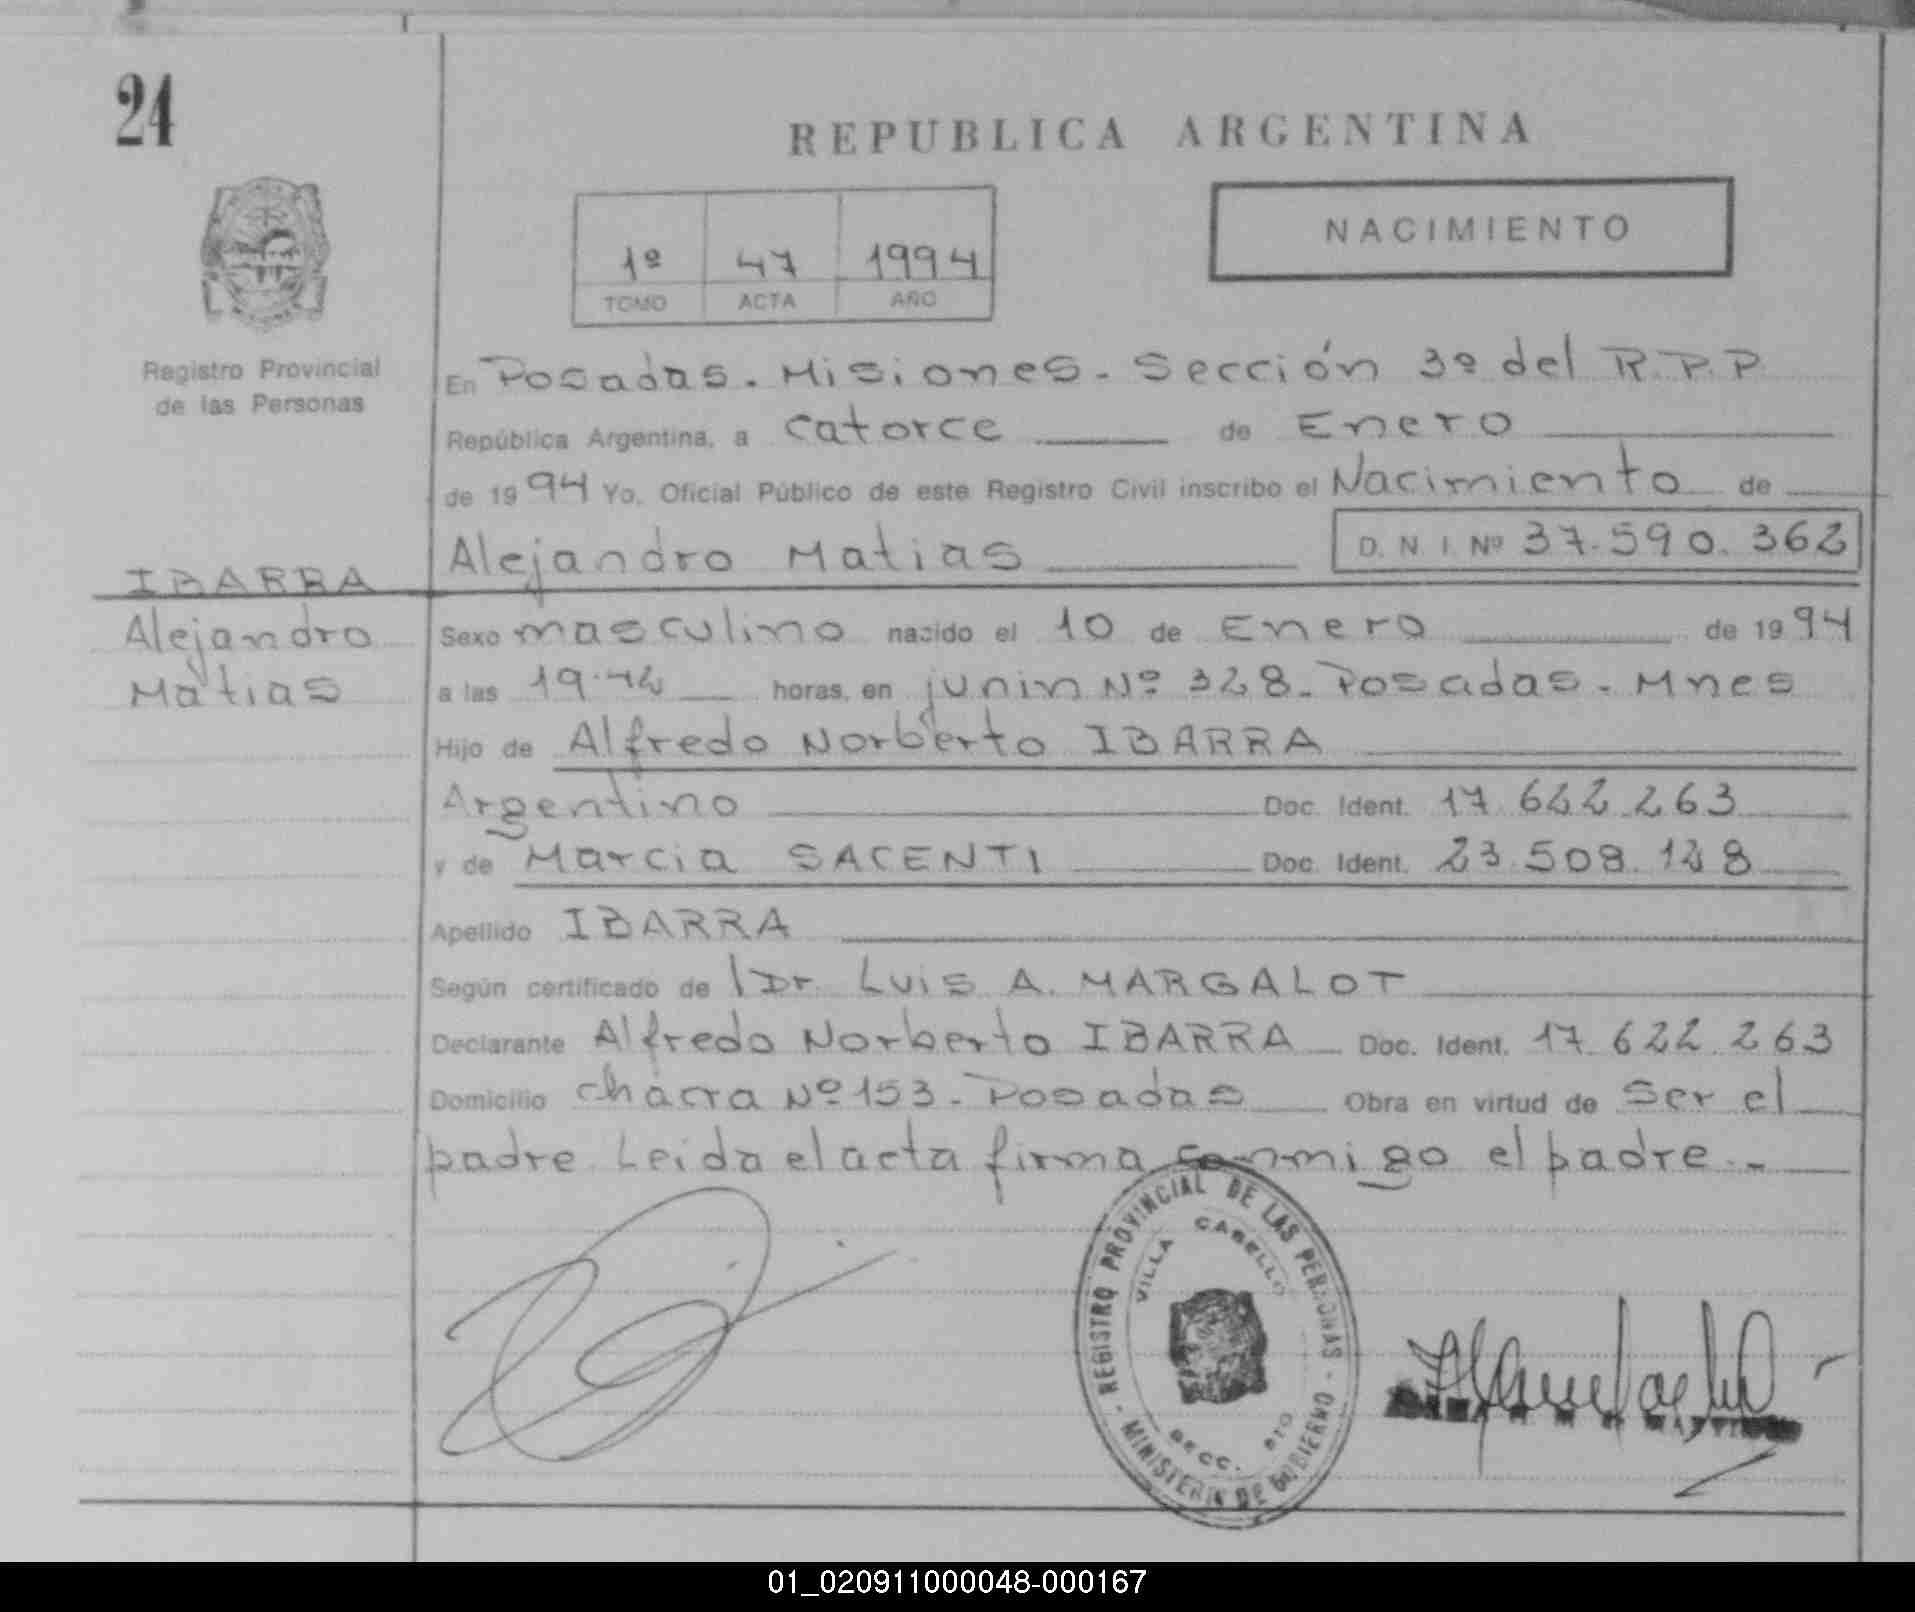 24
REPUBLICA ARGENTINA
NACIMIENTO
1º 47 1994
TOMO ACTA AÑO
Registro Provincial
de las Personas
En Posadas. Misiones. Sección 3º del R.P.P
República Argentina, a catorce de Enero
de 1994 Yo, Oficial Público de este Registro Civil inscribo el Nacimiento de
Alejandro Matias D.N.I. Nº 37.590.362
IBARRA
Alejandro
Matias
Sexo masculino nacido el 10 de Enero de 1994
a las 19.42 horas, en junin Nº 328. Posadas. Mnes
Hijo de Alfredo Norberto IBARRA
Argentino Doc. Ident. 17.622.263
y de Marcia SACENTI Doc. Ident. 23.508.128
Apellido IBARRA
Según certificado de l Dr. Luis A. MARGALOT
Declarante Alfredo Norberto IBARRA Doc. Ident. 17.622.263
Domicilio chacra Nº 153. Posadas Obra en virtud de ser el
padre. Leida el acta firma conmigo el padre.-
REGISTRO PROVINCIAL DE LAS PERSONAS
VILLA CABELLO
SECC.
- MINISTERIO DE GOBIERNO -
01_020911000048-000167